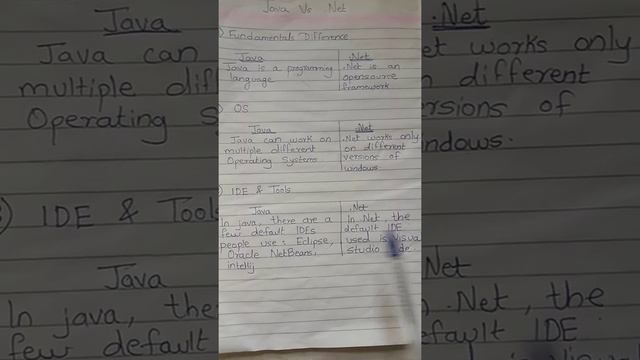 Java Vs .Net
) Fundamentals Difference
Java
Java is a programming
language
.Net
.Net is an
opensource
framework
) OS
Java
Java can work on
multiple different
Operating Systems
.Net
.Net works only
on different
versions of
windows
) IDE & Tools
Java
In java, there are a
few default IDEs
people use: Eclipse,
Oracle NetBeans,
intellij
.Net
In Net, the
default IDE
used is Visua
Studio de
Java
Java can
multiple dif
Operating S
) IDE & Tools
Java
In java, the
few default
.Net
et works only
n different
rsions of
ndows.
Net
. Net, the
efault IDE